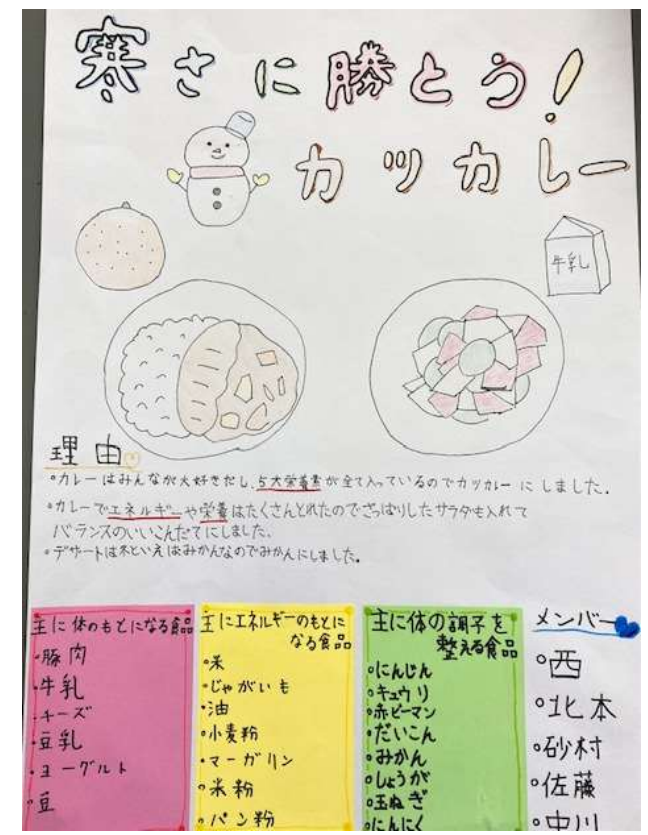 寒さに勝とう!
カツカレー
牛乳
理由
・カレーはみんなが大好きだし、5大栄養素が全て入っているのでカツカレーにしました。
・カレーでエネルギーや栄養はたくさんとれたのでさっぱりしたサラダも入れて
バランスのいいこんだてにしました。
・デザートは冬といえばみかんなのでみかんにしました。
主に体のもとになる食品
・豚肉
・牛乳
・チーズ
・豆乳
・ヨーグルト
・豆
主にエネルギーのもとに
なる食品
・米
・じゃがいも
・油
・小麦粉
・マーガリン
・米粉
・パン粉
主に体の調子を
整える食品
・にんじん
・キュウリ
・赤ピーマン
・だいこん
・みかん
・しょうが
・玉ねぎ
・にんにく
メンバー
・西
・北本
・砂村
・佐藤
・中川